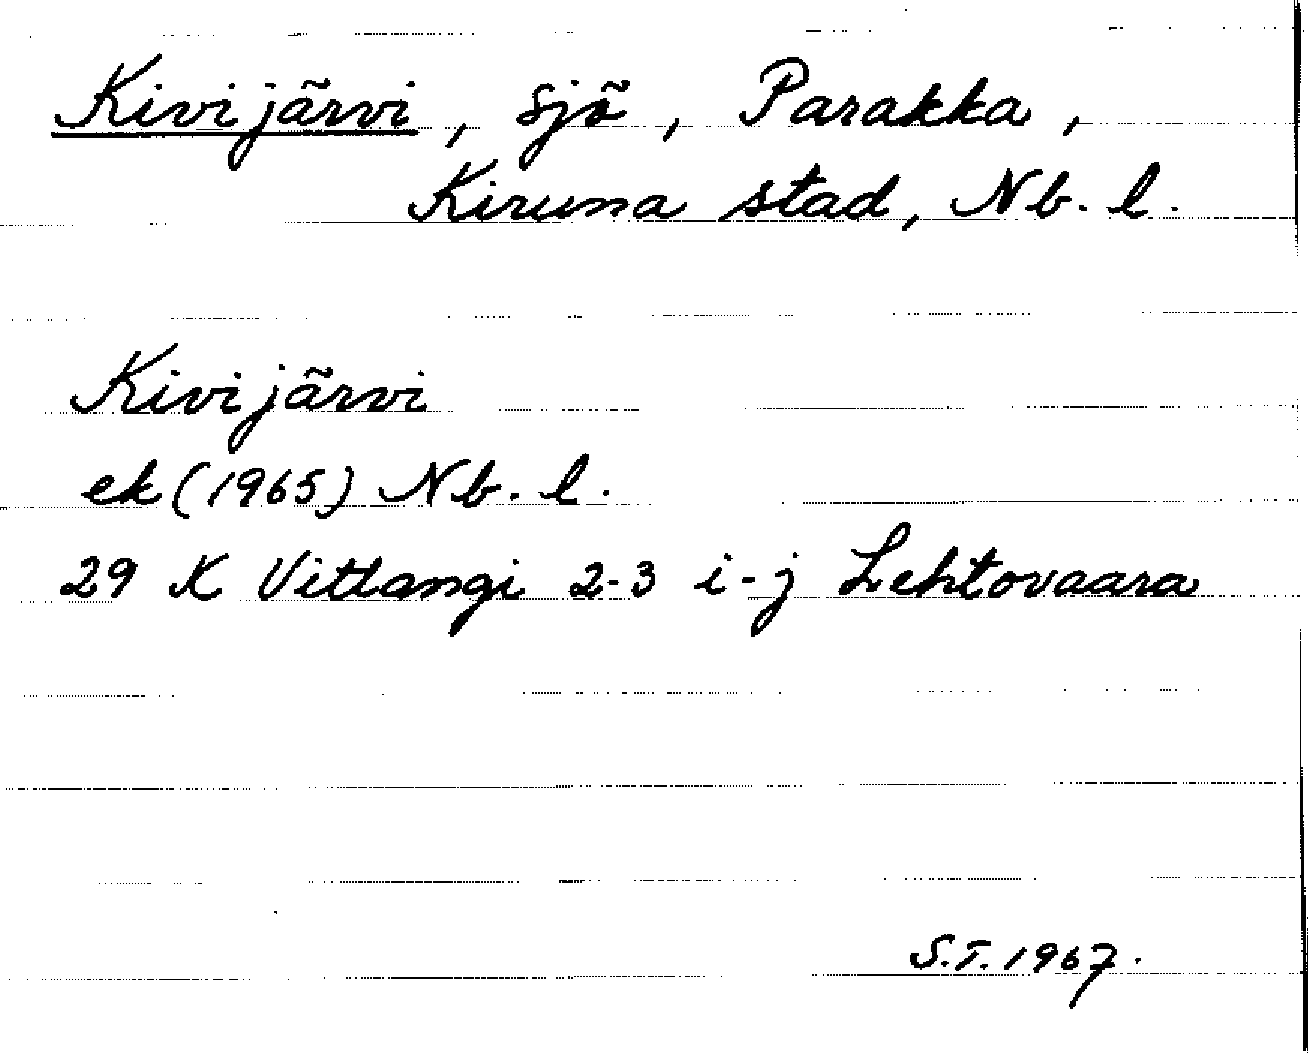 Kivijärvi, sjö, Parakka,
Kiruna stad, Nb. l.
Kivijärvi
ek (1965) Nb. l.
29 K Vittangi 2-3 i-j Lehtovaara
S.T. 1967.